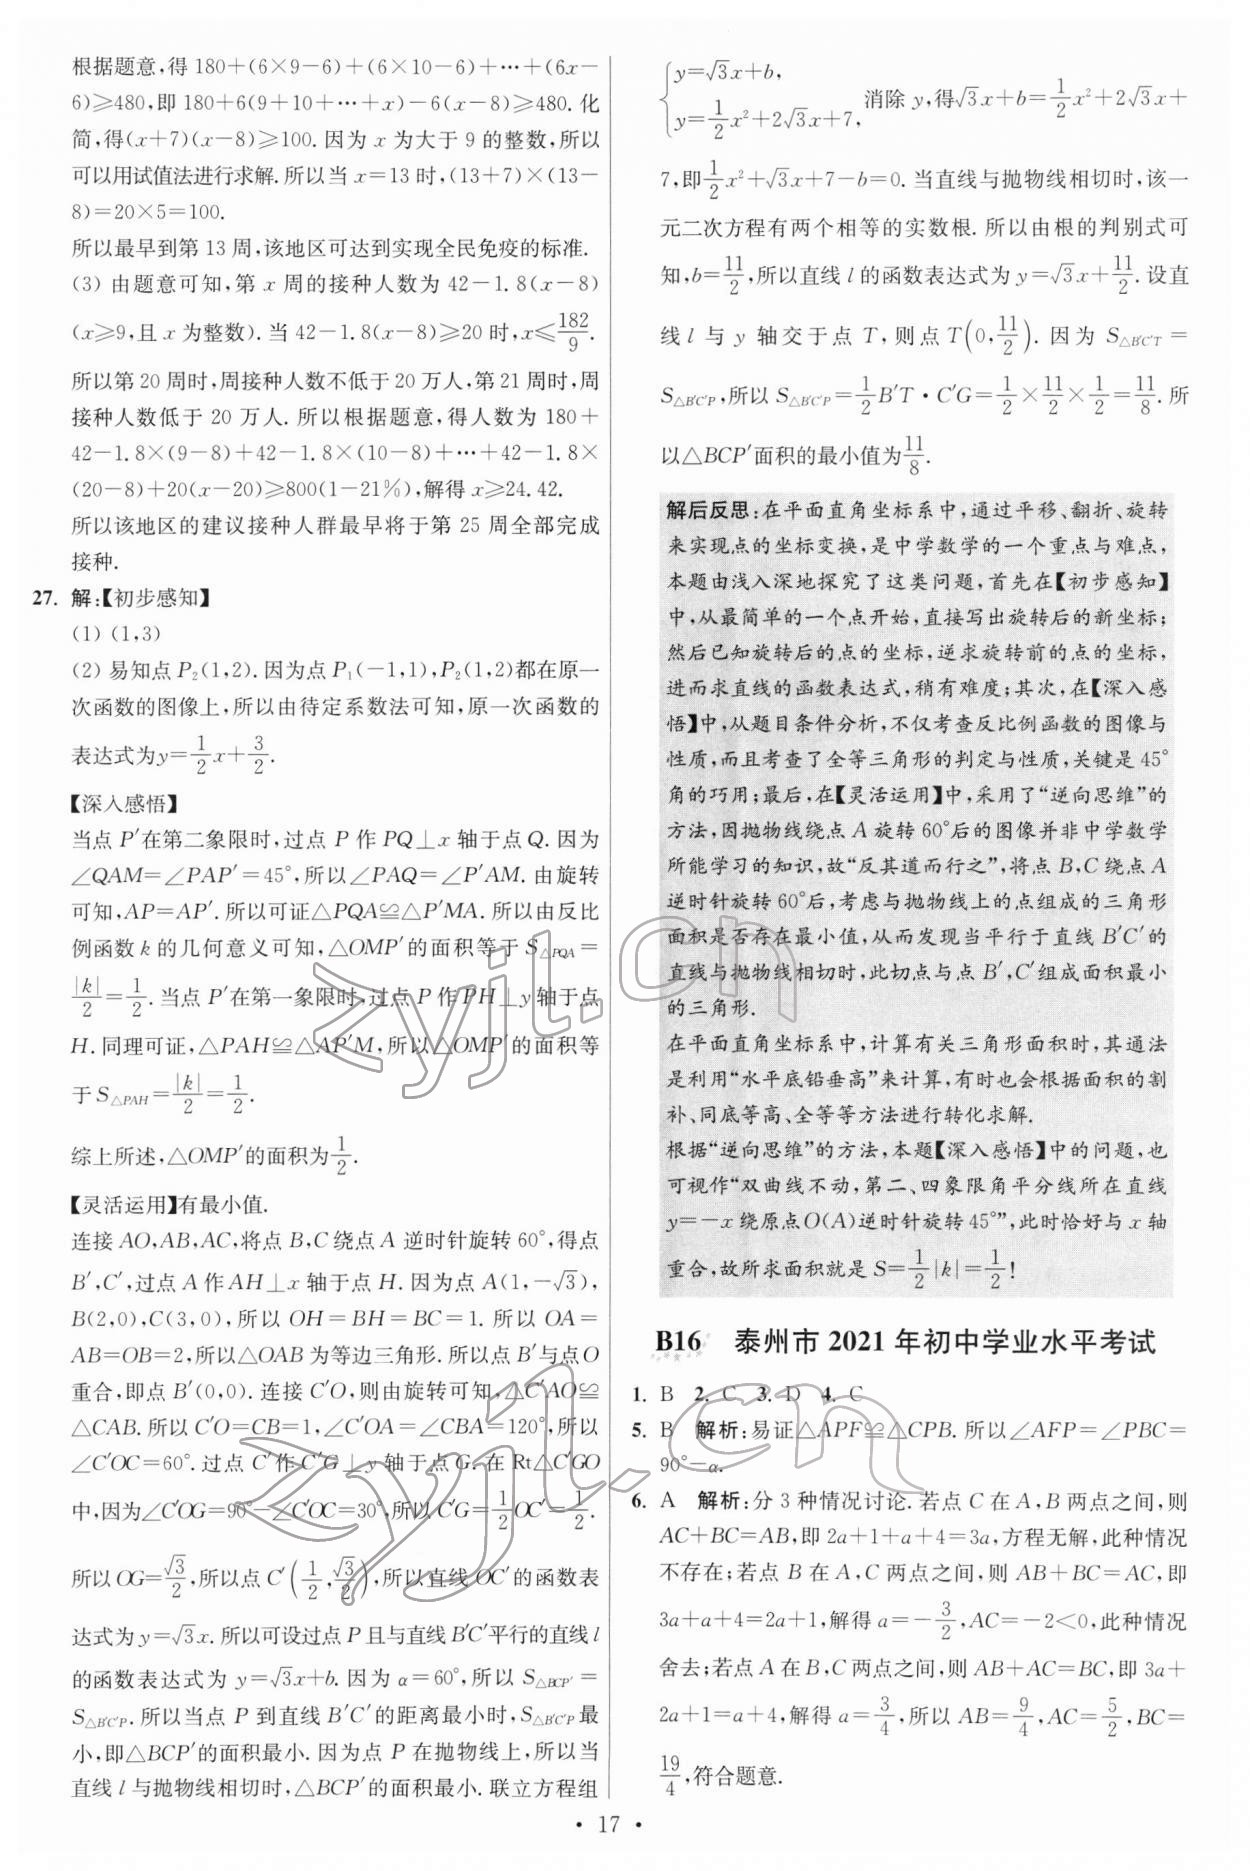 根据题意,得 180+(6×9-6)+(6×10-6)+…+(6x-
6)≥480,即 180+6(9+10+…+x)-6(x-8)≥480. 化
简,得(x+7)(x-8)≥100. 因为 x 为大于 9 的整数,所以
可以用试值法进行求解. 所以当 x=13 时,(13+7)×(13-
8)=20×5=100.
所以最早到第 13 周,该地区可达到实现全民免疫的标准.
(3) 由题意可知,第 x 周的接种人数为 42-1.8(x-8)
(x≥9,且 x 为整数). 当 42-1.8(x-8)≥20 时,x≤182/9.
所以第 20 周时,周接种人数不低于 20 万人,第 21 周时,周
接种人数低于 20 万人. 所以根据题意,得人数为 180+
42-1.8×(9-8)+42-1.8×(10-8)+…+42-1.8×
(20-8)+20(x-20)≥800(1-21%),解得 x≥24.42.
所以该地区的建议接种人群最早将于第 25 周全部完成
接种.
27. 解:【初步感知】
(1) (1,3)
(2) 易知点 P₂(1,2). 因为点 P₁(-1,1),P₂(1,2)都在原一
次函数的图像上,所以由待定系数法可知,原一次函数的
表达式为y=1/2x+3/2.
【深入感悟】
当点 P′在第二象限时,过点 P 作 PQ⊥x 轴于点 Q. 因为
∠QAM=∠PAP′=45°,所以∠PAQ=∠P′AM. 由旋转
可知,AP=AP′. 所以可证△PQA≌△P′MA. 所以由反比
例函数 k 的几何意义可知,△OMP′的面积等于 S△PQA=
|k|/2=1/2. 当点 P′在第一象限时,过点 P 作 PH⊥y 轴于点
H. 同理可证,△PAH≌△AP′M,所以△OMP′的面积等
于 S△PAH=|k|/2=1/2.
综上所述,△OMP′的面积为1/2.
【灵活运用】有最小值.
连接 AO,AB,AC,将点 B,C 绕点 A 逆时针旋转 60°,得点
B′,C′,过点 A 作 AH⊥x 轴于点 H. 因为点 A(1,-√3),
B(2,0),C(3,0),所以 OH=BH=BC=1. 所以 OA=
AB=OB=2,所以△OAB 为等边三角形. 所以点 B′与点O
重合,即点 B′(0,0). 连接 C′O,则由旋转可知,△C′AO≌
△CAB. 所以 C′O=CB=1,∠C′OA=∠CBA=120°,所以
∠C′OC=60°. 过点 C′作 C′G⊥y 轴于点G. 在 Rt△C′GO
中,因为∠C′OG=90°-∠C′OC=30°,所以 C′G=1/2OC′=1/2.
所以 OG=√3/2,所以点 C′(1/2,√3/2),所以直线 OC′的函数表
达式为 y=√3x. 所以可设过点 P 且与直线 B′C′平行的直线 l
的函数表达式为 y=√3x+b. 因为 α=60°,所以 S△BCP′=
S△B′C′P. 所以当点 P 到直线 B′C′的距离最小时,S△B′C′P最
小,即△BCP′的面积最小. 因为点 P 在抛物线上,所以当
直线 l 与抛物线相切时,△BCP′的面积最小. 联立方程组
{y=√3x+b,
y=1/2x²+2√3x+7, 消除 y,得√3x+b=1/2x²+2√3x+
7,即1/2x²+√3x+7-b=0. 当直线与抛物线相切时,该一
元二次方程有两个相等的实数根. 所以由根的判别式可
知,b=11/2,所以直线 l 的函数表达式为 y=√3x+11/2. 设直
线 l 与 y 轴交于点 T,则点 T(0,11/2). 因为 S△B′C′T=
S△B′C′P,所以 S△B′C′P=1/2B′T·C′G=1/2×11/2×1/2=11/8. 所
以△BCP′面积的最小值为11/8.
解后反思:在平面直角坐标系中,通过平移、翻折、旋转
来实现点的坐标变换,是中学数学的一个重点与难点,
本题由浅入深地探究了这类问题,首先在【初步感知】
中,从最简单的一个点开始,直接写出旋转后的新坐标;
然后已知旋转后的点的坐标,逆求旋转前的点的坐标,
进而求直线的函数表达式,稍有难度;其次,在【深入感
悟】中,从题目条件分析,不仅考查反比例函数的图像与
性质,而且考查了全等三角形的判定与性质,关键是 45°
角的巧用;最后,在【灵活运用】中,采用了“逆向思维”的
方法,因抛物线绕点 A 旋转 60°后的图像并非中学数学
所能学习的知识,故“反其道而行之”,将点 B,C 绕点 A
逆时针旋转 60°后,考虑与抛物线上的点组成的三角形
面积是否存在最小值,从而发现当平行于直线 B′C′的
直线与抛物线相切时,此切点与点 B′,C′组成面积最小
的三角形.
在平面直角坐标系中,计算有关三角形面积时,其通法
是利用“水平底铅垂高”来计算,有时也会根据面积的割
补、同底等高、全等等方法进行转化求解.
根据“逆向思维”的方法,本题【深入感悟】中的问题,也
可视作“双曲线不动,第二、四象限角平分线所在直线
y=-x 绕原点O(A)逆时针旋转 45°”,此时恰好与 x 轴
重合,故所求面积就是 S=1/2|k|=1/2!
B16 泰州市 2021 年初中学业水平考试
1. B 2. C 3. D 4. C
5. B 解析:易证△APF≌△CPB. 所以∠AFP=∠PBC=
90°-α.
6. A 解析:分 3 种情况讨论. 若点 C 在 A,B 两点之间,则
AC+BC=AB,即 2a+1+a+4=3a,方程无解,此种情况
不存在;若点 B 在 A,C 两点之间,则 AB+BC=AC,即
3a+a+4=2a+1,解得 a=-3/2,AC=-2<0,此种情况
舍去;若点 A 在 B,C 两点之间,则 AB+AC=BC,即 3a+
2a+1=a+4,解得 a=3/4,所以 AB=9/4,AC=5/2,BC=
19/4,符合题意.
• 17 •
zyjl.cn
zyjl.cn